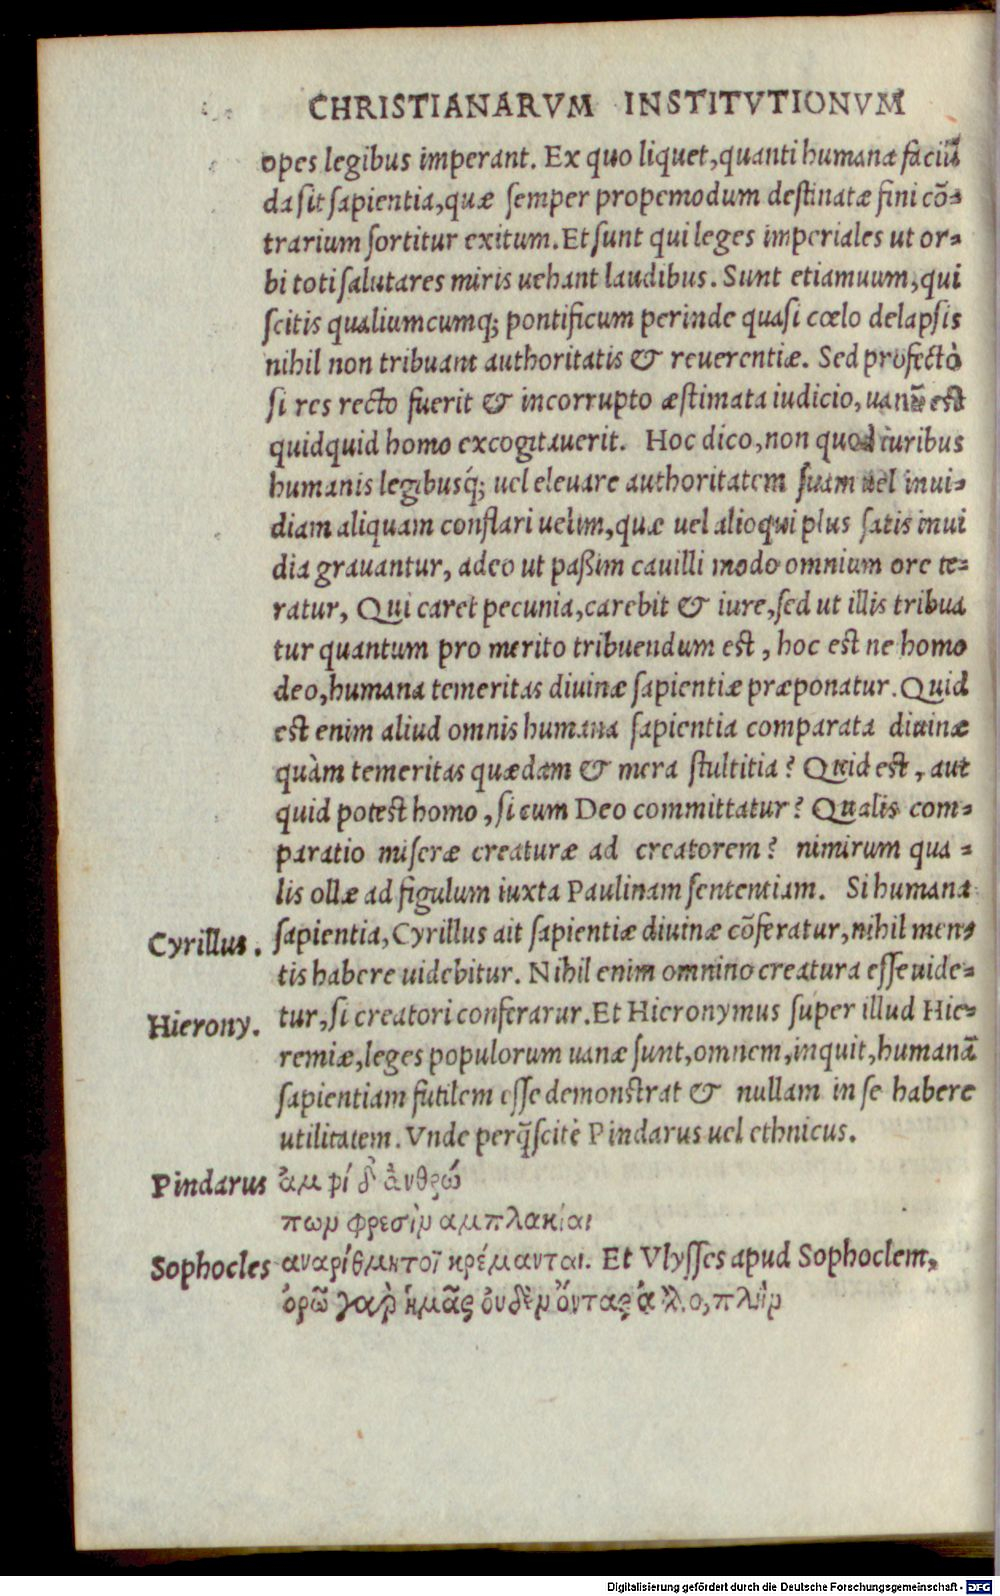 CHRISTIANARVM INSTITVTIONVM
opes legibus imperant. Ex quo liquet, quanti humanæ faciũ
da sit sapientia, quæ semper propemodum destinatæ fini cõ-
trarium sortitur exitum. Et sunt qui leges imperiales ut or-
bi toti salutares miris uehant laudibus. Sunt etiamuum, qui
scitis qualiumcumq; pontificum perinde quasi cœlo delapsis
nihil non tribuant authoritatis & reuerentiæ. Sed profectò
si res recto fuerit & incorrupto æstimata iudicio, uanũ est
quidquid homo excogitauerit. Hoc dico, non quod iuribus
humanis legibusq́; uel eleuare authoritatem suam uel inui-
diam aliquam conflari uelim, quæ uel alioqui plus satis inui
dia grauantur, adeo ut paßim cauilli modo omnium ore te-
ratur, Qui caret pecunia, carebit & iure, sed ut illis tribua
tur quantum pro merito tribuendum est, hoc est ne homo
deo, humana temeritas diuinæ sapientiæ præponatur. Quid
est enim aliud omnis humana sapientia comparata diuinæ
quàm temeritas quædam & mera stultitia? Quid est, aut
quid potest homo, si cum Deo committatur? Qualis com-
paratio miseræ creaturæ ad creatorem? nimirum qua-
lis ollæ ad figulum iuxta Paulinam sententiam. Si humana
Cyrillus. sapientia, Cyrillus ait sapientiæ diuinæ cõferatur, nihil men-
tis habere uidebitur. Nihil enim omnino creatura esse uide-
Hierony. tur, si creatori conferarur. Et Hieronymus super illud Hie-
remiæ, leges populorum uanæ sunt, omnem, inquit, humanã
sapientiam futilem esse demonstrat & nullam in se habere
utilitatem. Vnde perq̃scitè Pindarus uel ethnicus.
Pindarus ἀμφί δ' ἀνθρώ
πων φρεσὶν αμπλακίαι
Sophocles αναρίθμητοϊ κρέμανται. Et Vlysses apud Sophoclem,
ὁρῶ γὰρ ἡμᾶς ὀυδὲν ὄντας ἄλλο, πλὴν
Digitalisierung gefördert durch die Deutsche Forschungsgemeinschaft - DFG